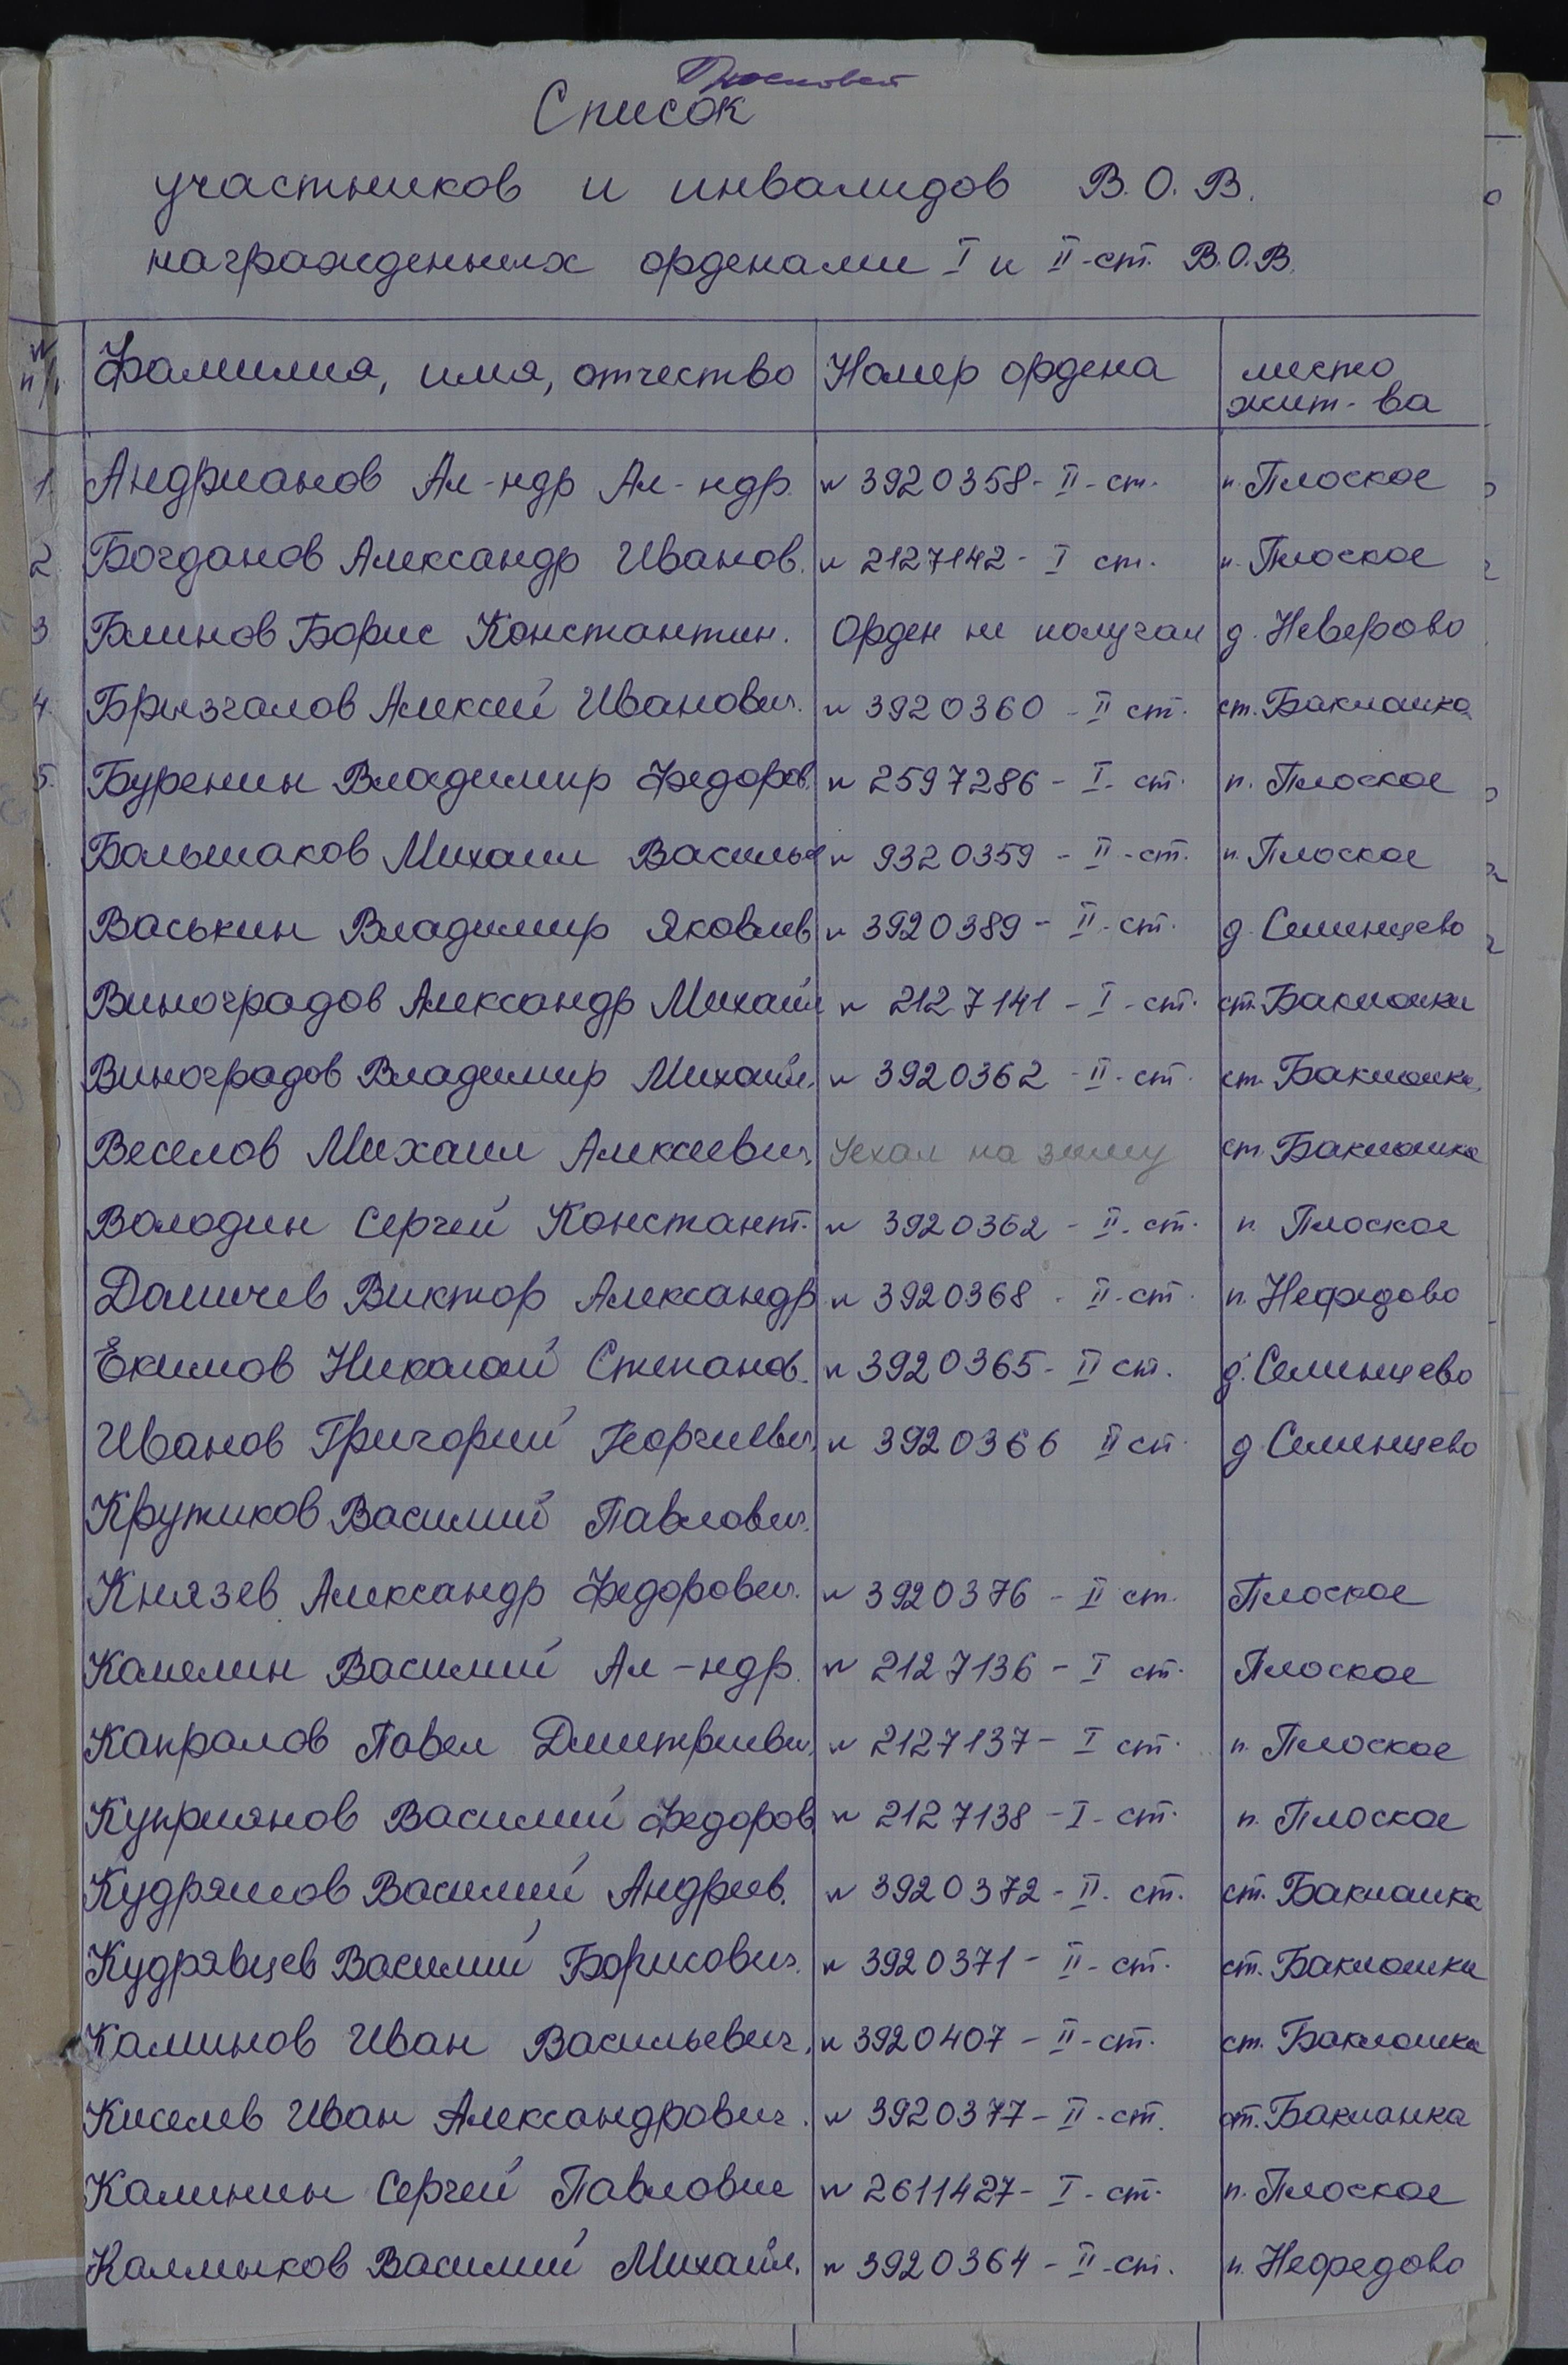 Список
участников и инвалидов В.О.В.
награжденных орденами I и II-ст. В.О.В.
№ п/п Фамилия, имя, отчество Номер ордена место
жит-ва
1. Андрианов Ал-ндр Ал-ндр. № 3920358 - II - ст. п. Плоское
2. Богданов Александр Иванов. № 2127142 - I ст. п. Плоское
3 Блинов Борис Константин. Орден не получал д. Неверово
4. Брызгалов Алексей Иванович. № 3920360 - II ст. ст. Бакланка
5. Буренин Владимир Федоров. № 2597286 - I - ст. п. Плоское
Большаков Михаил Василье № 9320359 - II - ст. п. Плоское
Васькин Владимир Яковлев № 3920389 - II - ст. д. Семенцево
Виноградов Александр Михайл № 2127141 - I - ст. ст. Бакланки
Виноградов Владимир Михайл. № 3920362 - II - ст. ст. Бакланка
Веселов Михаил Алексеевич, Уехал на зиму ст. Бакланка
Володин Сергей Констант. № 3920362 - II - ст. п. Плоское
Даличев Виктор Александр № 3920368 - II - ст. п. Нефедово
Екимов Николай Степанов. № 3920365 - II ст. д. Семенцево
Иванов Григорий Георгиевич, № 3920366 II ст д. Семенцево
Крутиков Василий Павлович.
Князев Александр Федорович. № 3920376 - II ст. Плоское
Камелин Василий Ал-ндр. № 2127136 - I ст. Плоское
Капралов Павел Дмитриевич, № 2127137 - I ст. п. Плоское
Куприянов Василий Федоров. № 2127138 - I - ст. п. Плоское
Кудряшов Василий Андреев. № 3920372 - II. ст. ст. Бакланка
Кудрявцев Василий Борисович. № 3920371 - II - ст. ст. Бакланки
Калинов Иван Васильевич, № 3920407 - II - ст. ст. Бакланка
Киселев Иван Александрович. № 3920377 - II - ст. ст. Бакланка
Калинин Сергей Павлович № 2611427 - I - ст. п. Плоское
Калмыков Василий Михайл. № 3920364 - II - ст. п. Нефедово